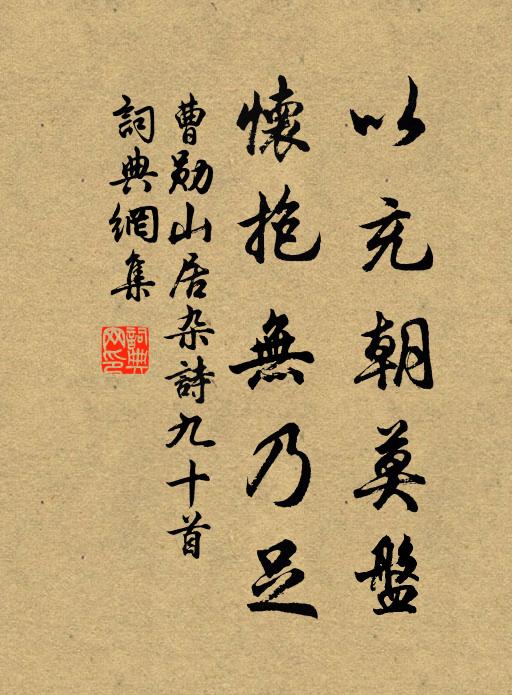 以充朝莫盤
懷抱無乃足
曹勛山居杂詩九十首
詞典網集
詞典網印